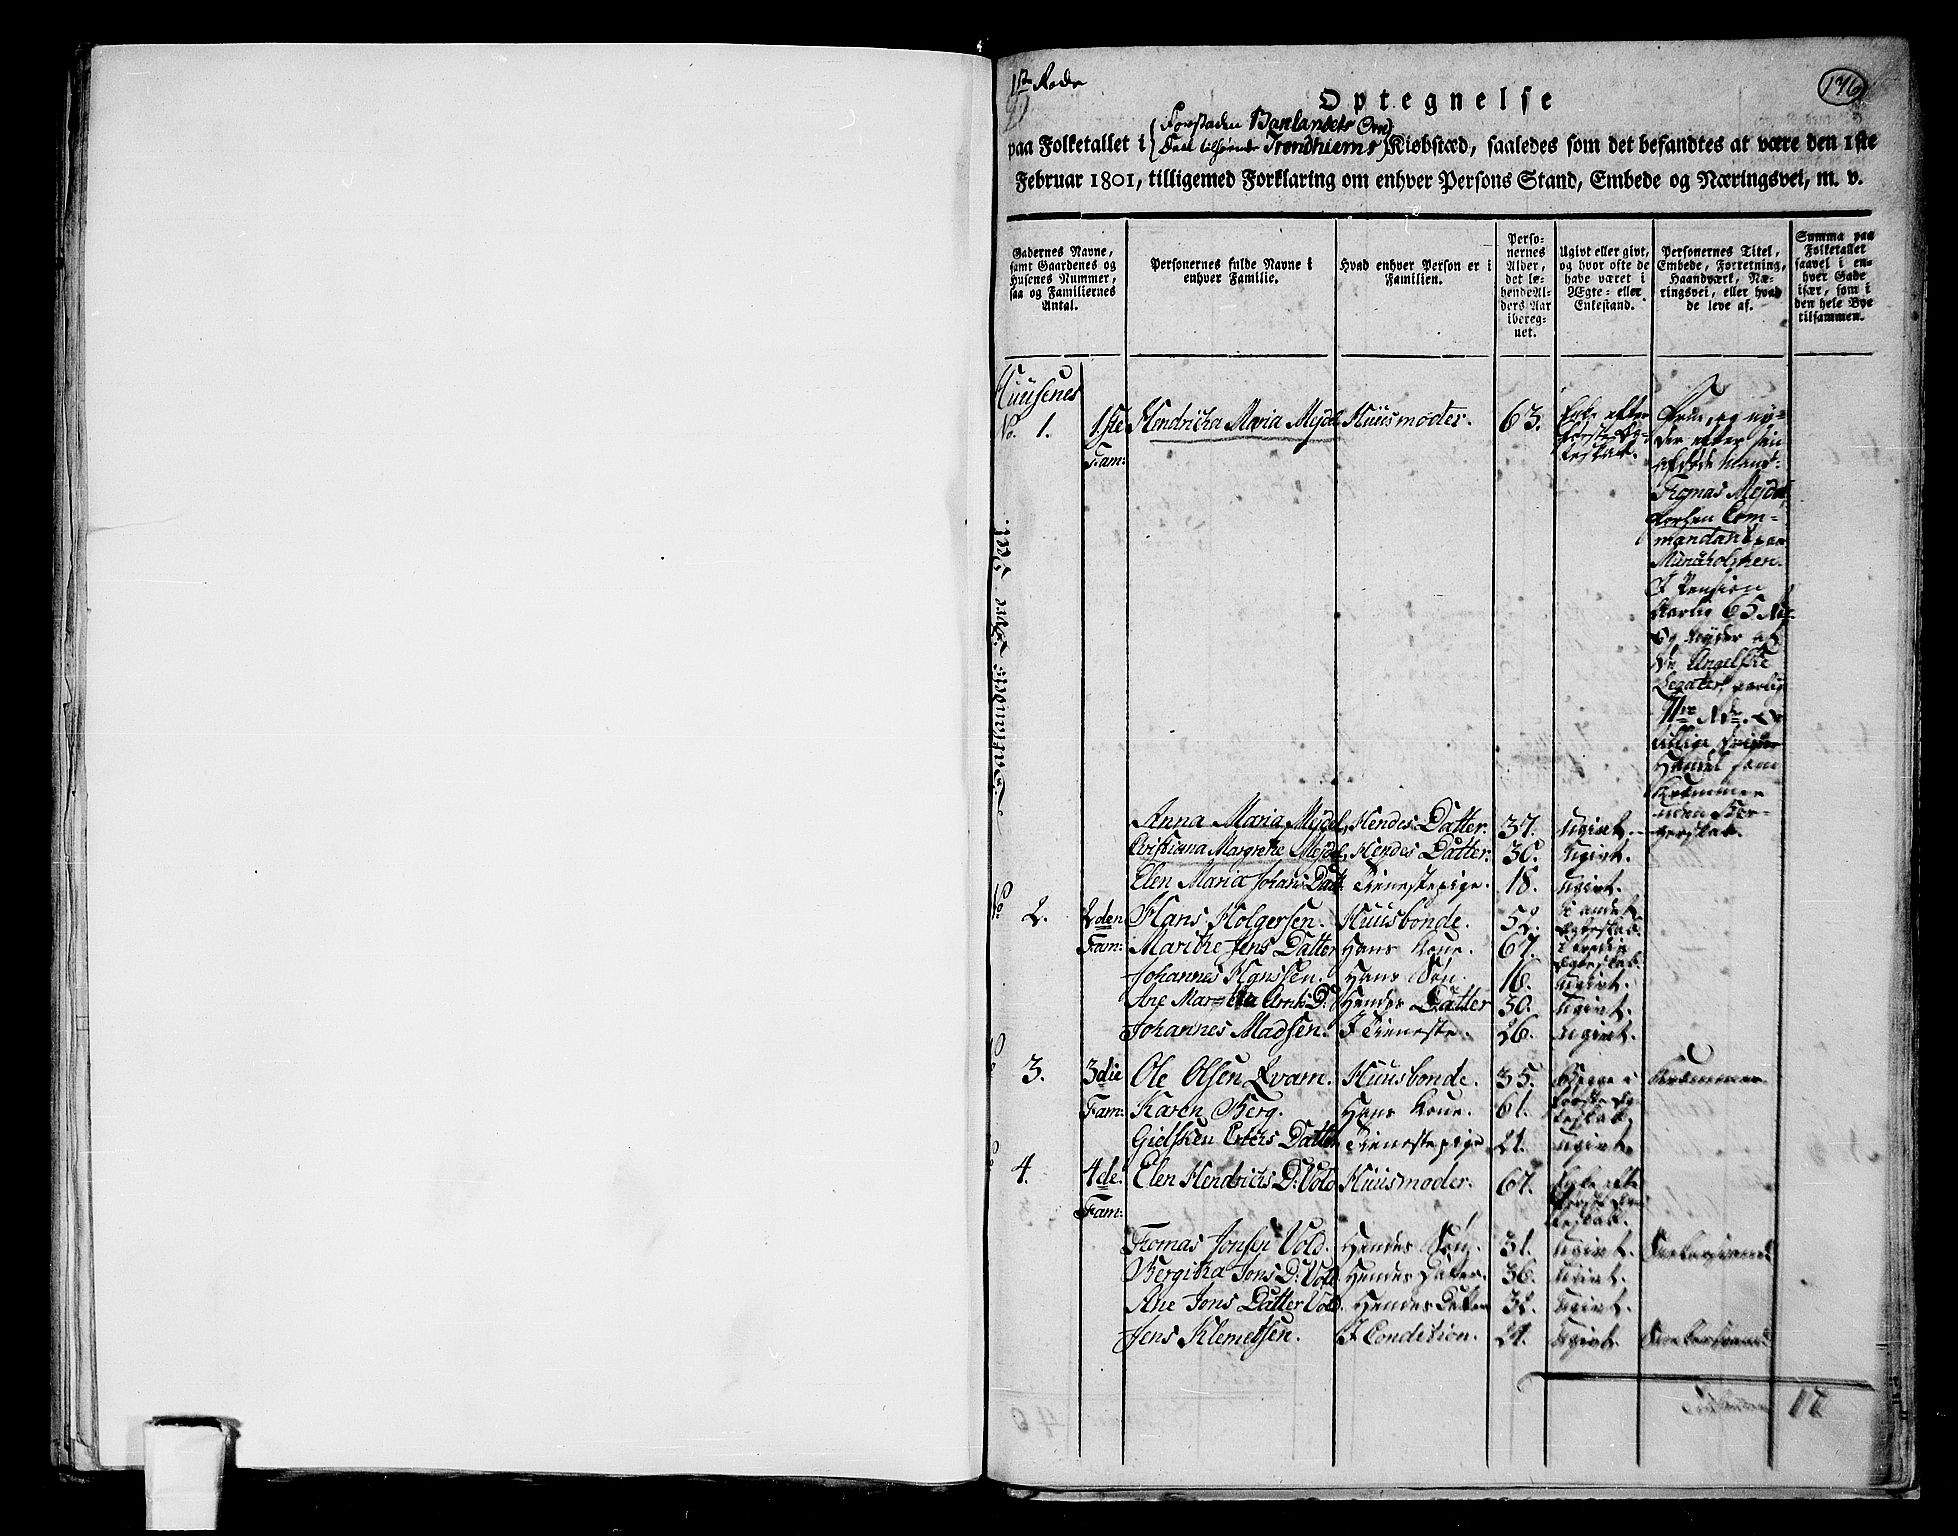 1ste Rode
176
Optegnelse
Forstaden Baklandets
paa Folketallet i Trondhiems Kiøbstæd, saaledes som det befandtes at være den 1ste
Februar 1801, tilligemed Forklaring om enhver Persons Stand, Embede og Næringsvei, m. v.
Gadernes Navne, samt Gaardenes og Husenes Nummer, saa og Familiernes Antal.
Personernes fulde Navne i enhver Familie.
Hvad enhver Person er i Familien.
Personernes Alder, det løbende Alders Aar iberegnet.
Ugivt eller givt, og hvor ofte de have været i Ægte- eller Enkestand.
Personernes Titel, Embede, Forretning, Haandværk, Næringsvei, eller hvad de leve af.
Summa paa Folketallet saavel i enhver Gade især, som i den hele Bye tilsammen.
Huusenes
No. 1. 1ste Fam: Hendricha Maria Mejdel Huusmoder. 63. Enke efter første Egteskab.
afdøde Mand
Thomas Mejdel
Commandant paa
Munkholmen.
I Pension
aarlig 65 Rdr
og nyder af
de Angelske
Legater, aarlig
Handel som
Kræmmer
uden Borgerskab.
Anna Maria Mejdel, Hendes Datter. 37. Ugivt.
Cristiana Margrethe Mejdel, Hendes Datter. 30. Ugivt.
Elen Maria Johans Datt. Tienestepige. 18. Ugivt.
No 2. 2den Fam: Hans Holgersen. Huusbonde. 52. I andet Egteskab.
Marithe Jens Datter Hans Kone. 67. I tredie Egteskab.
Johannes Hanssen. Hans Søn. 16. Ugivt.
Ane Margreta Arnts D: Hendes Datter 30. Ugivt.
Johannes Madsen. I Tieneste. 26. Ugivt.
No 3. 3die Fam: Ole Olsen Qvam. Huusbonde. 35. Begge i første Egteskab. Kræmmer
Karen Berg. Hans Kone. 61.
Gielsken Esters Datter Tienestepige 21. Ugivt.
No 4. 4de Fam: Elen Hendrichs D: Vold Huusmoder. 67. Enke efter første Egteskab.
Tromas Jonsen Vold. Hendes Søn. 31. Ugivt.
Bergitha Jons D: Vold Hendes Datter. 36. Ugivt.
Ane Jons Datter Vold. Hendes Datter 32. Ugivt.
Jens Klemetsen. I Condition. 21. Ugivt.
17